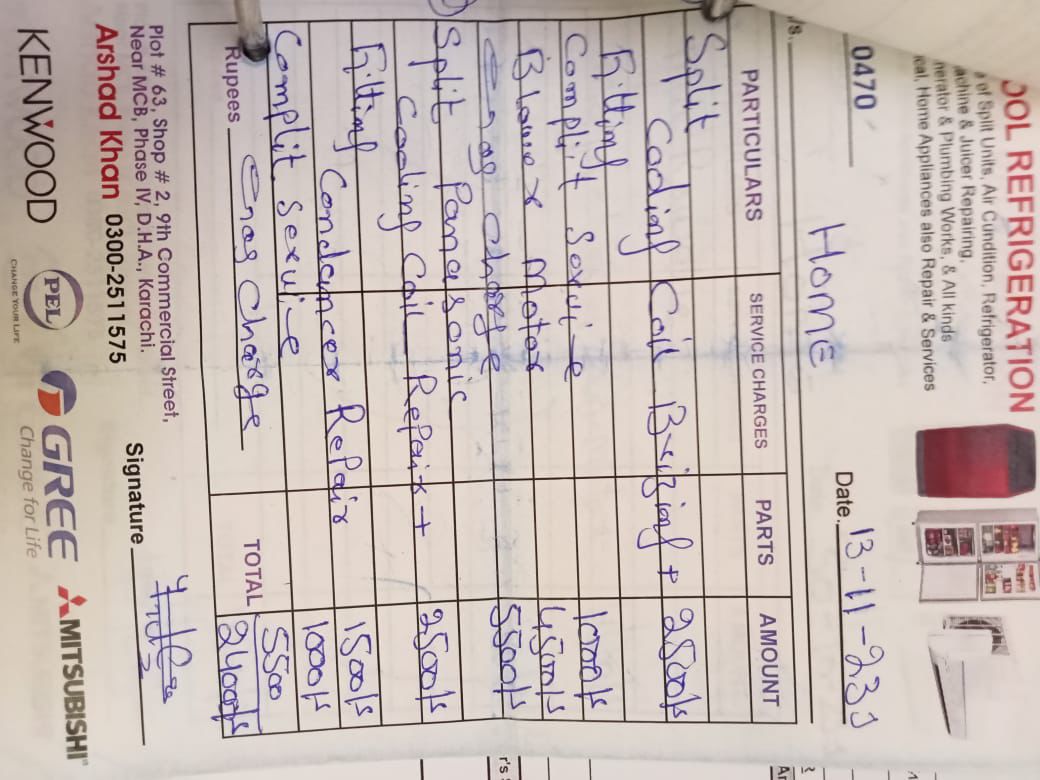 OOL REFRIGERATION
of Split Units, Air Cundition, Refrigerator,
achine & Juicer Repairing,
nerator & Plumbing Works, & All kinds
ical, Home Appliances also Repair & Services
0470
Date. 13-11-23
Home
PARTICULARS SERVICE CHARGES PARTS AMOUNT
Split
Cooling Coil Brizing + 2500/s
Fitting
Complit Sarvice 1000/s
Blower Motor 4500/s
Gas Charge 5500/s
Split Panasonic
Cooling Coil Repair + 2500/s
Fitting
Condancer Repair 1500/s
Complit Service 1000/s
Gas Charge 5500
Rupees TOTAL 24000/s
Signature
Plot # 63, Shop # 2, 9th Commercial Street,
Near MCB, Phase IV, D.H.A., Karachi.
Arshad Khan 0300-2511575
KENWOOD PEL GREE MITSUBISHI
CHANGE YOUR LIFE Change for Life